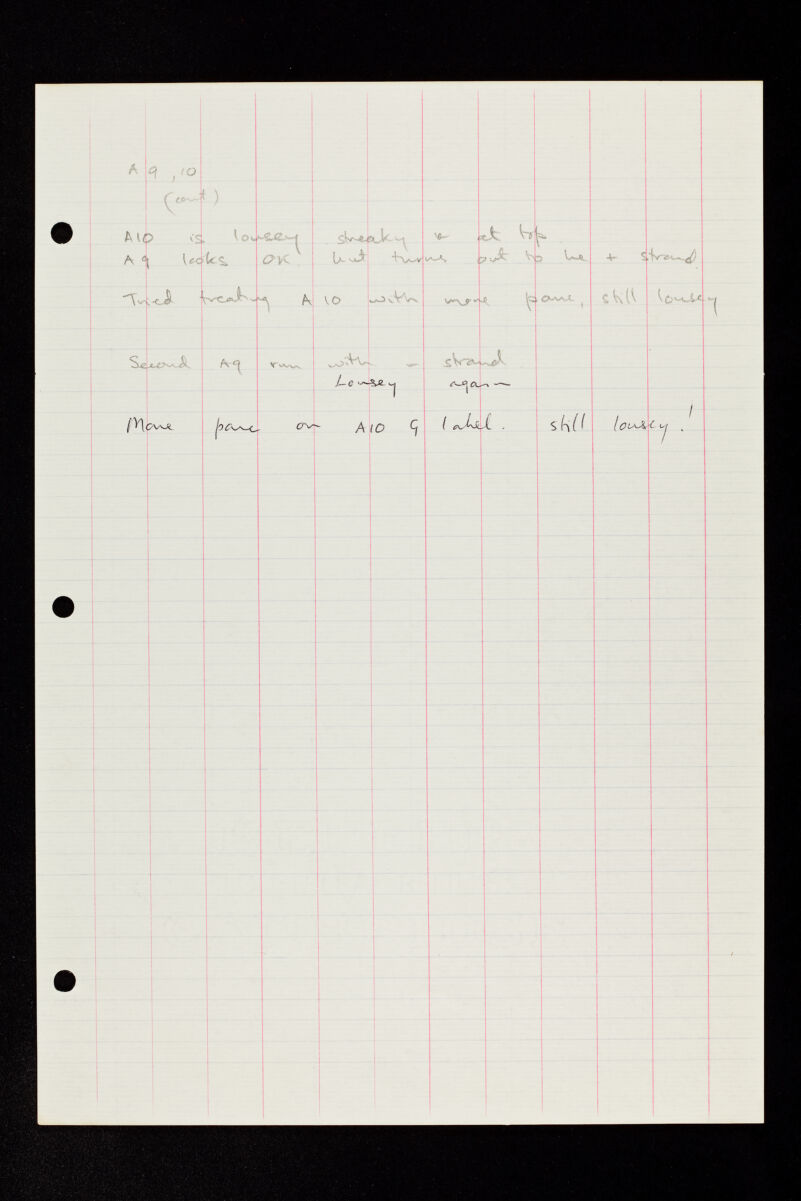 A 9, 10
(cont)
A10 is lousey streaky & at top
A 9 looks OK but turns out to be + strand
Tried treating A 10 with more panc, still lousey
Second A9 run with - strand
Lousey again
More panc on A10 G label. still lousey!